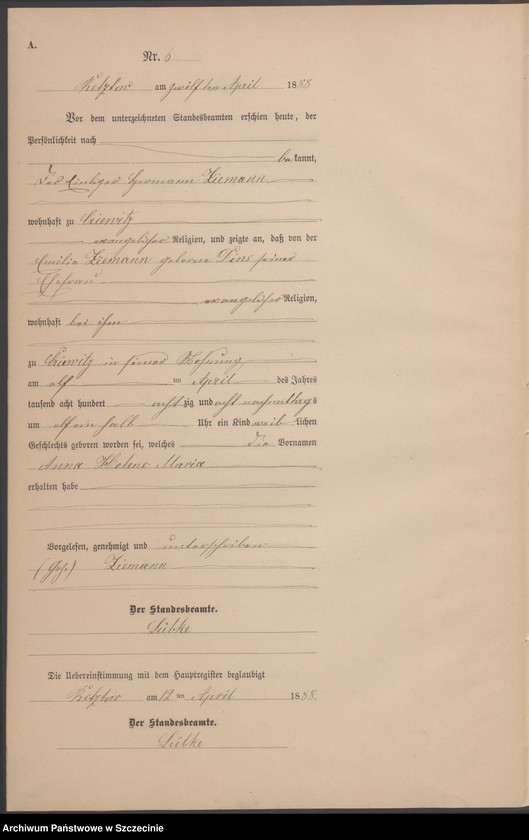 A.
Nr. 6
am zwölften April 1888
Vor dem unterzeichneten Standesbeamten erschien heute, der
Persönlichkeit nach
be kannt,
der Einlieger Hermann Ziemann
wohnhaft zu Criewitz
evangelischer Religion, und zeigte an, daß von der
Emilie Ziemann geborene seiner
Ehefrau
evangelischer Religion,
wohnhaft bei ihm
zu Criewitz in seiner Wohnung
am elf ten April des Jahres
tausend acht hundert acht zig und acht nachmittags
um elf ein halb Uhr ein Kind weib lichen
Geschlechts geboren worden sei, welches die Vornamen
Anna Helene Maria
erhalten habe
Vorgelesen, genehmigt und unterschrieben
(Gez.) Ziemann
Der Standesbeamte.
Lübke
Die Uebereinstimmung mit dem Hauptregister beglaubigt
am 12 ten April 1888.
Der Standesbeamte.
Lübke
Archiwum Państwowe w Szczecinie